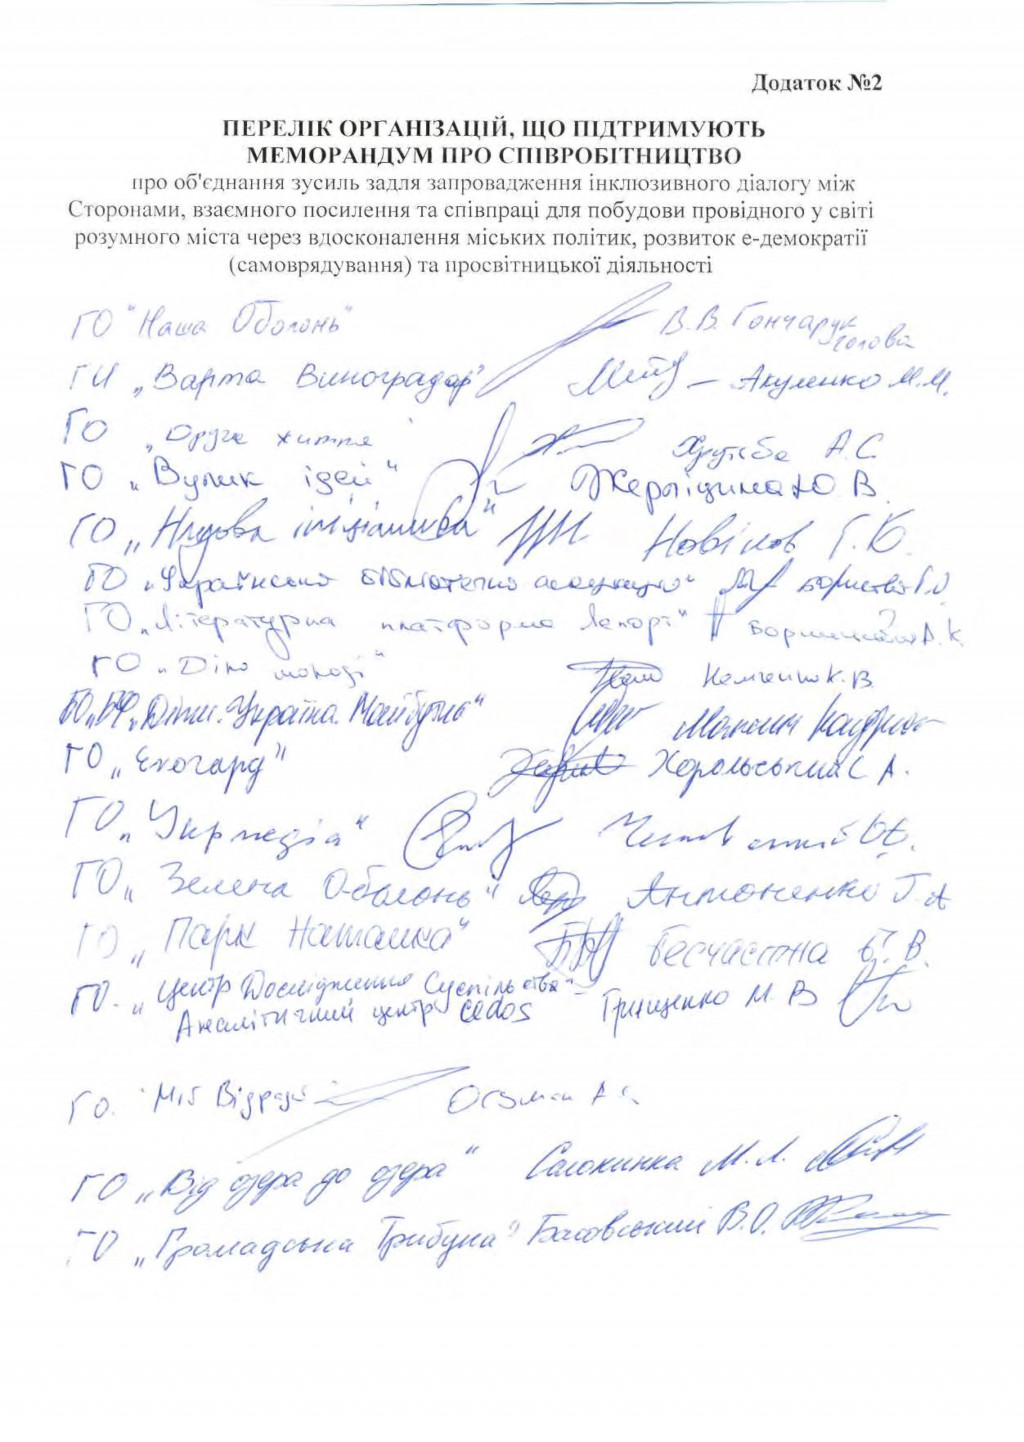 Додаток №2
ПЕРЕЛІК ОРГАНІЗАЦІЙ, ЩО ПІДТРИМУЮТЬ
МЕМОРАНДУМ ПРО СПІВРОБІТНИЦТВО
про об'єднання зусиль задля запровадження інклюзивного діалогу між
Сторонами, взаємного посилення та співпраці для побудови провідного у світі
розумного міста через вдосконалення міських політик, розвиток е-демократії
(самоврядування) та просвітницької діяльності
ГО "Наша Оболонь" В.В. Гончарук
голова
„Варта Виноградар" Акуленко М.М.
ГО „Друге життя" А.С.
ГО „Вулик ідей" Ю.В.
ГО „ ініціатива" Новіков Г.Ю.
ГО „Українська бібліотечна асоціація"
ГО „Літературна платформа Лепорт" А.К.
ГО „Діло молоді" К.В.
„Діти. Україна. Майбутнє"
ГО „Екогард" Хорольський С А.
ГО „Укрмедіа"
ГО „Зелена Оболонь" Антоненко Г.А
ГО „Парк Наталка" Бесчастна Б.В.
ГО „Центр Дослідження Суспільства" – Грищенко М.В
Аналітичний центр Cedos
ГО. "Мій Відрадний
ГО „Від озера до озера" Солокинка М.Л.
ГО „Громадська Трибуна" Басовський В.О.